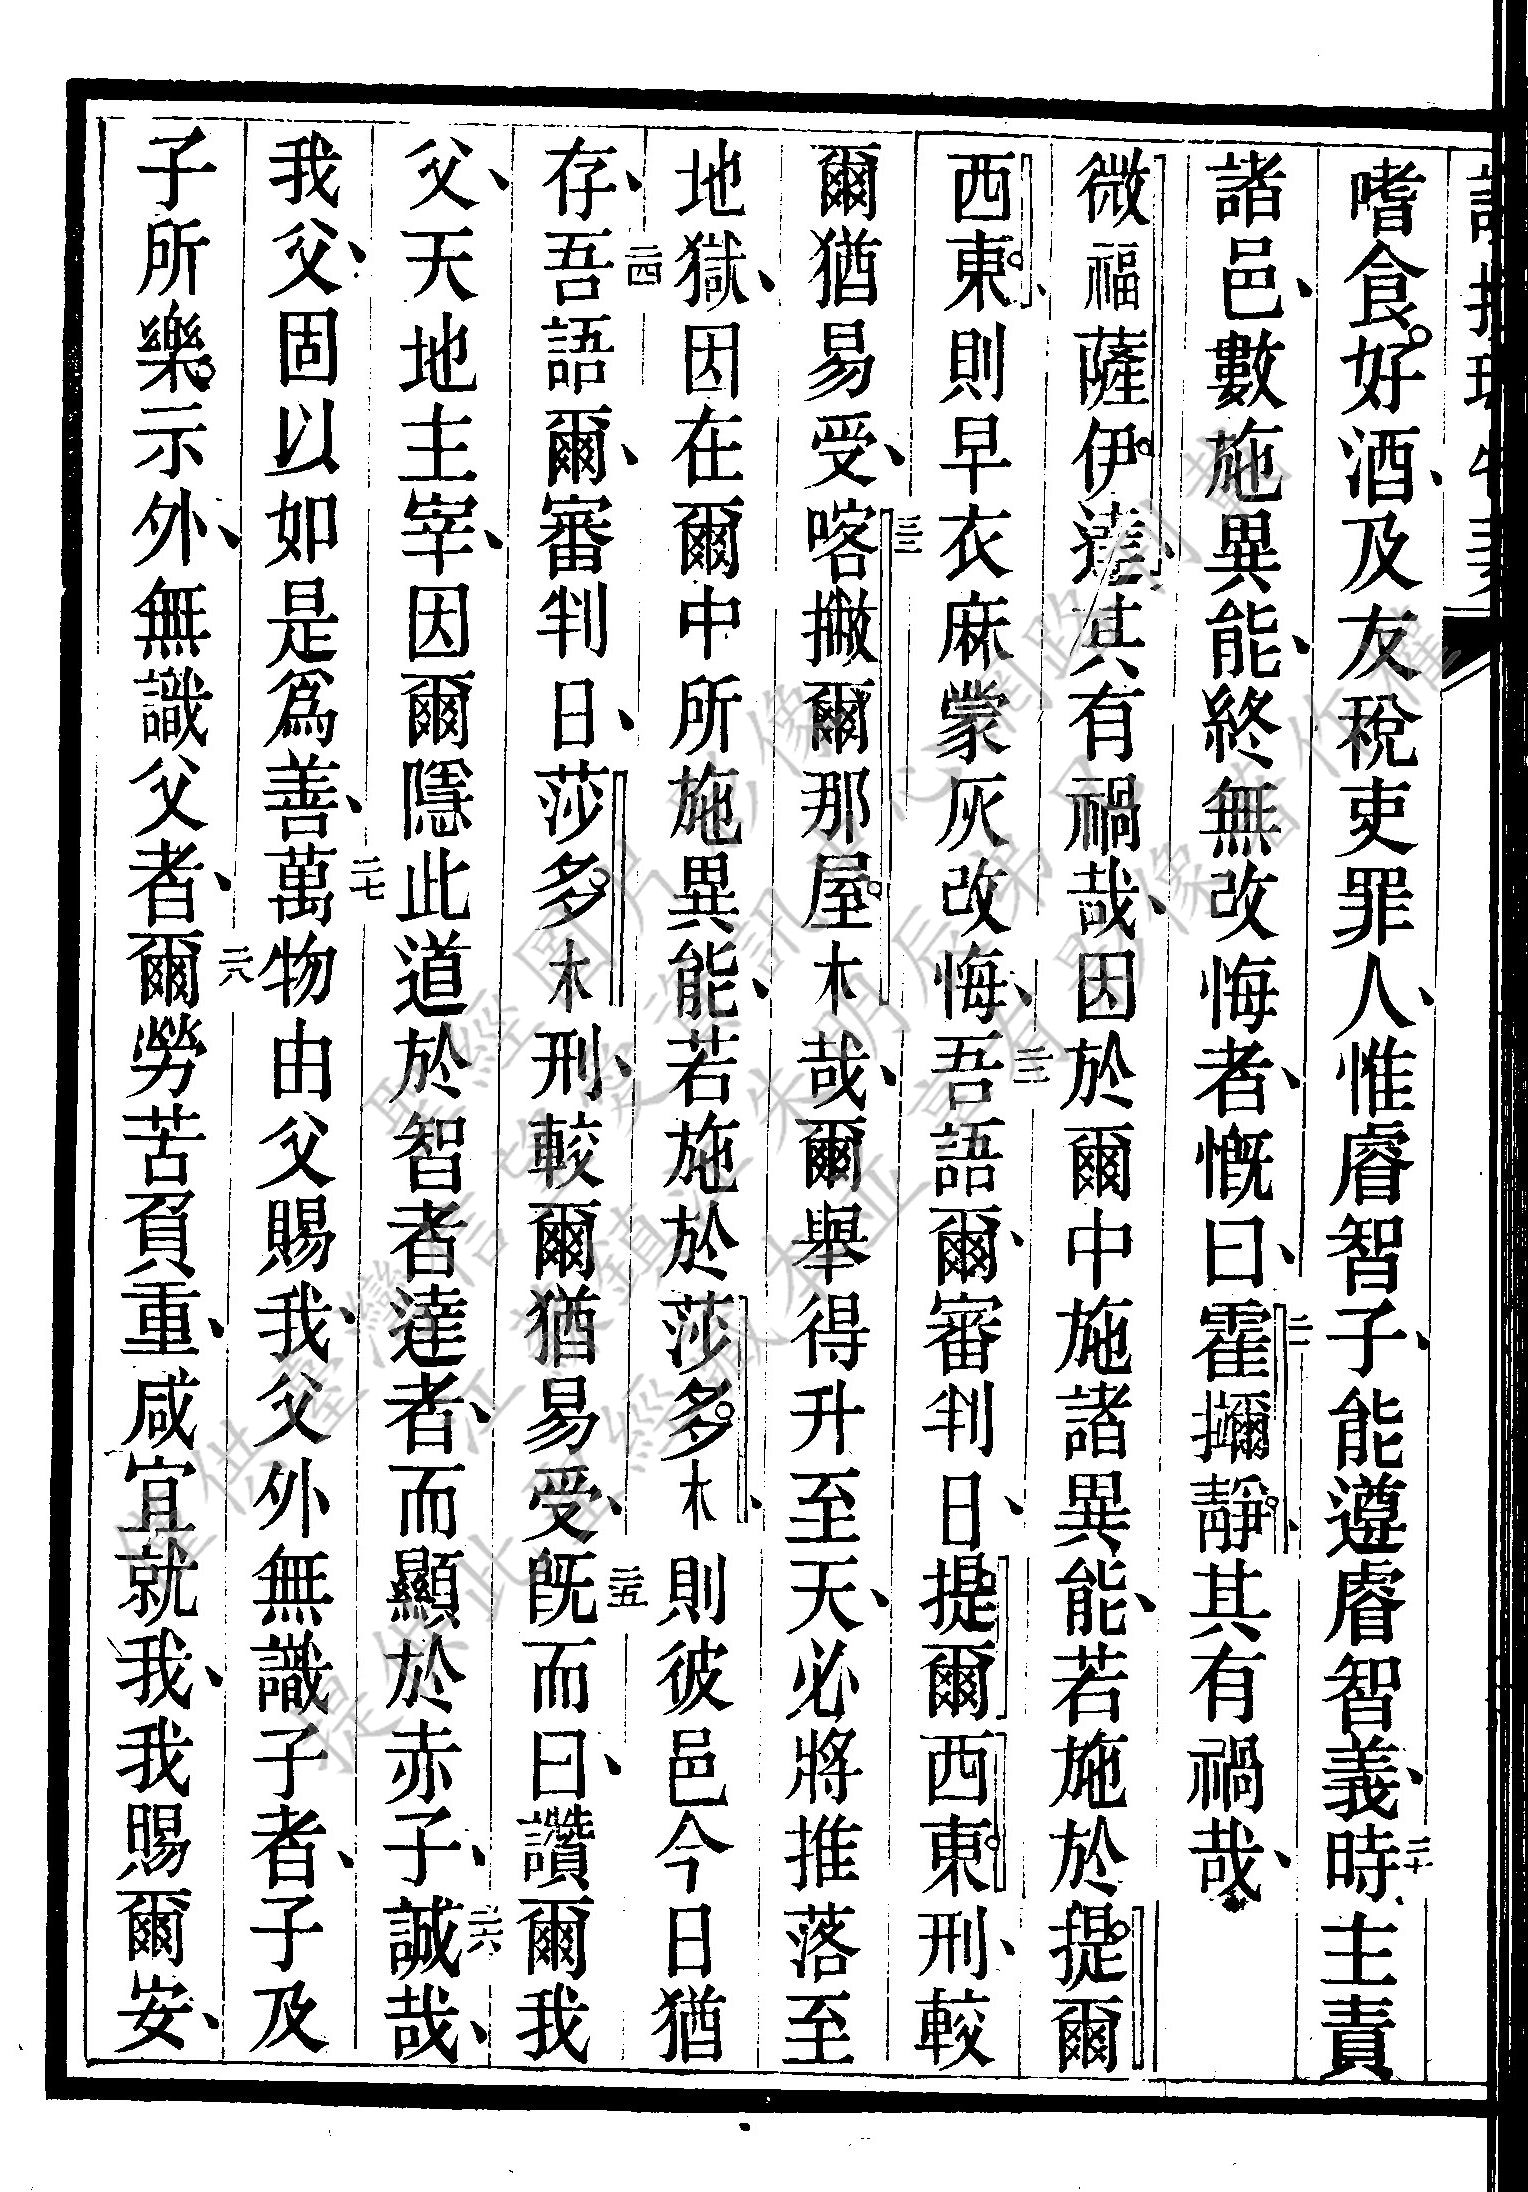 嗜食。好酒、及友稅吏罪人、惟睿智子、能遵睿智義、二十時主責
諸邑、數施異能、終無改悔者、慨曰、二一霍擟靜。其有禍哉、
微福薩伊達、其有禍哉、因於爾中施諸異能、若施於提爾
西東。則早衣麻蒙灰改悔、二二吾語爾、審判日、提爾西東。刑、較
爾猶易受、二三喀撇爾那屋木哉、爾舉得升至天、必將推落至
地獄、因在爾中所施異能、若施於莎多木、則彼邑今日猶
存、二四吾語爾、審判日、莎多木刑、較爾猶易受、二五旣而曰、讚爾我
父、天地主宰、因爾隱此道於智者達者、而顯於赤子、二六誠哉、
我父、固以如是爲善、二七萬物由父賜我、我父外無識子者、子及
子所樂。示外、無識父者、二八爾勞苦負重、咸宜就我、我賜爾安、